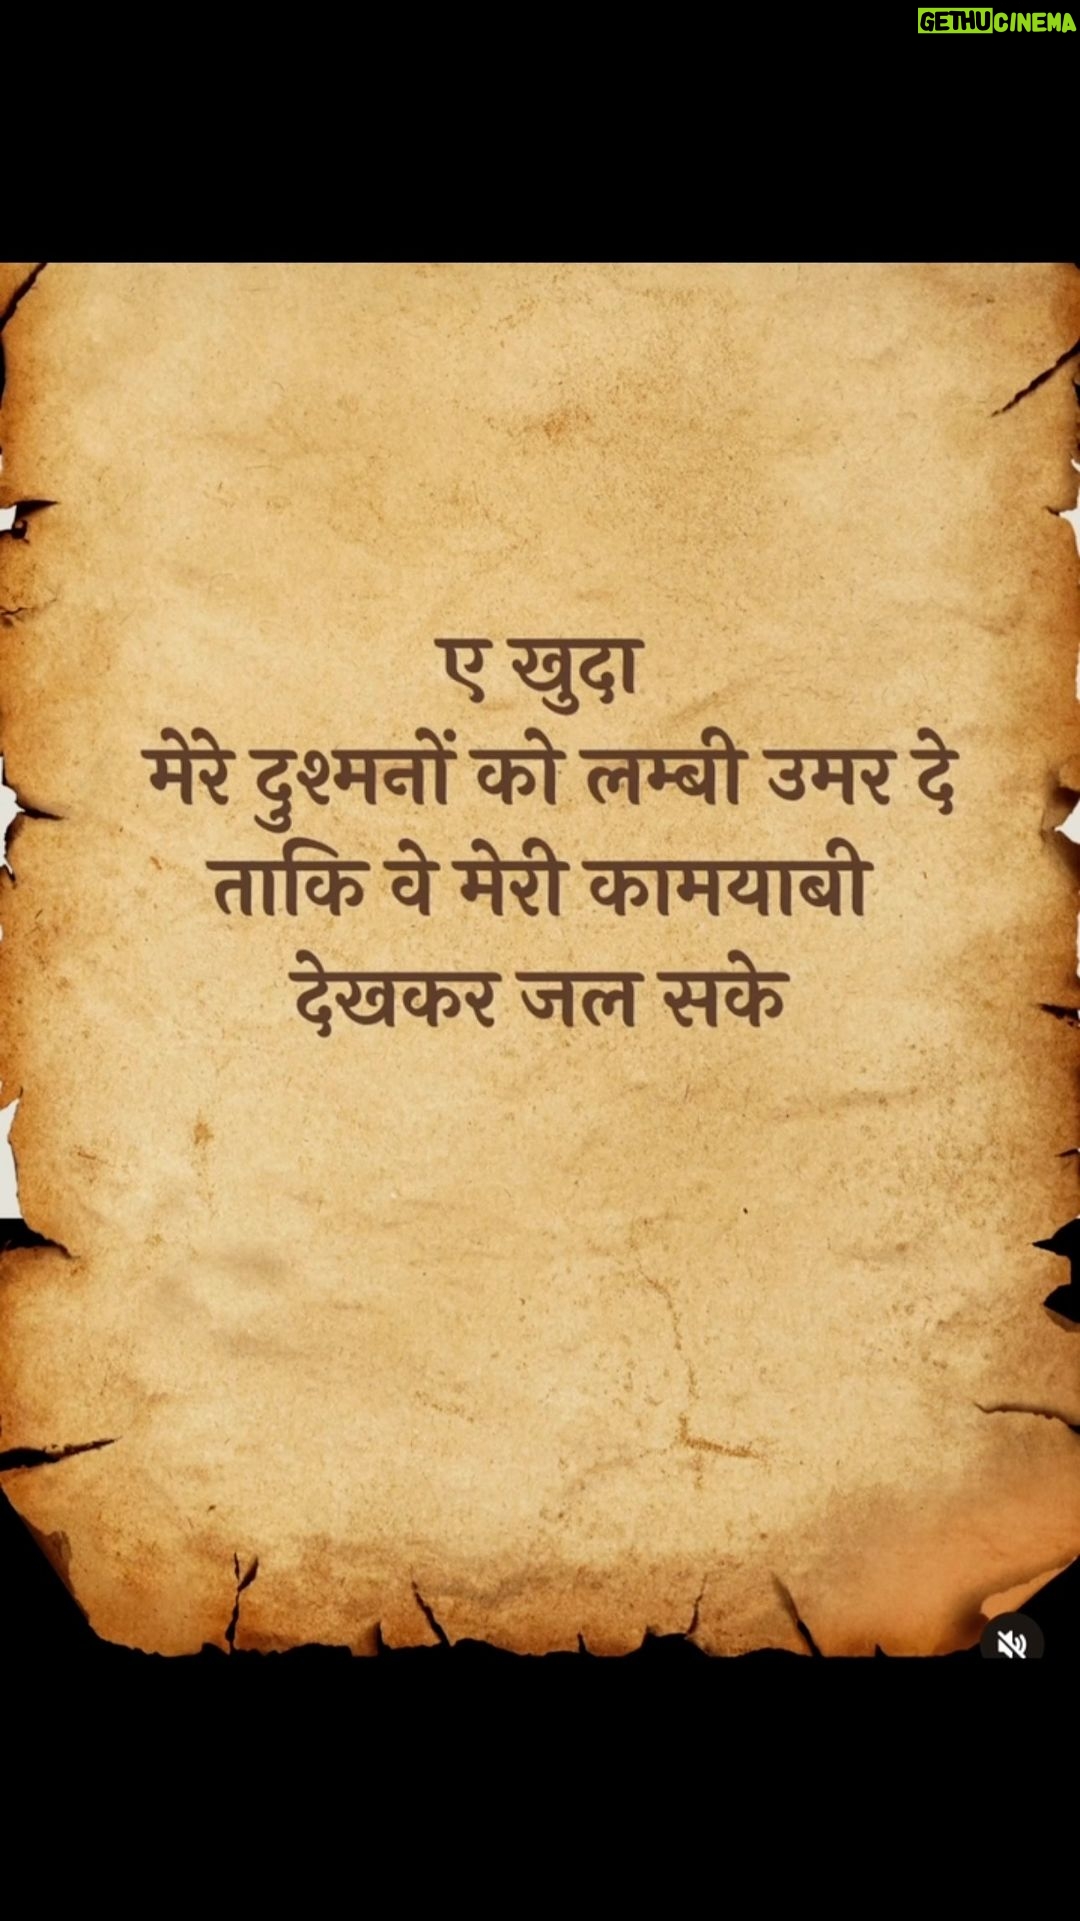 GETHUCINEMA
ए खुदा
मेरे दुश्मनों को लम्बी उमर दे
ताकि वे मेरी कामयाबी
देखकर जल सके